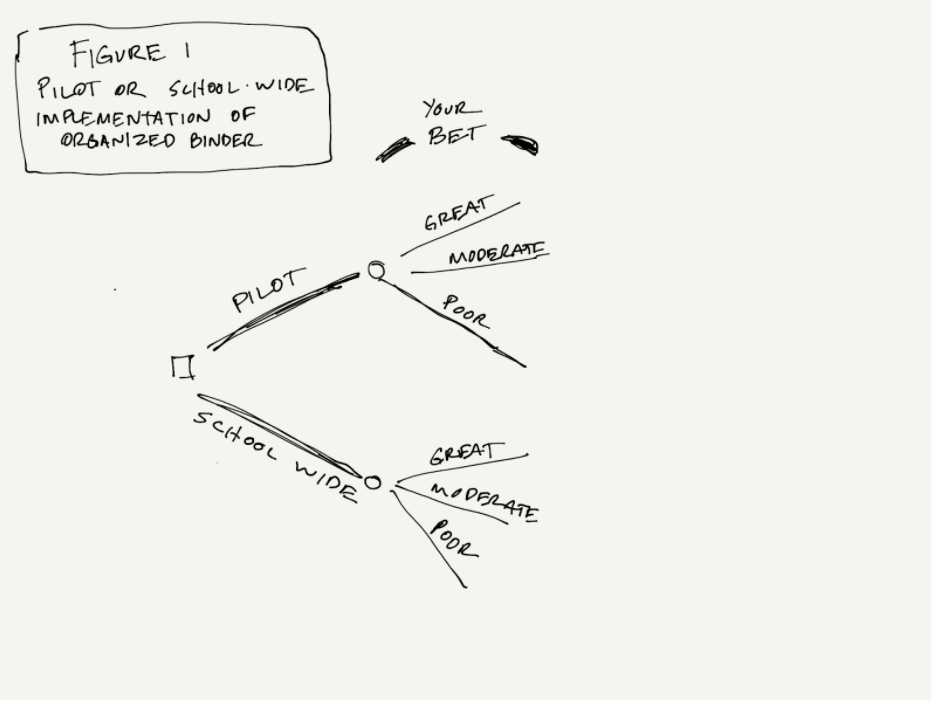 FIGURE 1
PILOT OR SCHOOL-WIDE
IMPLEMENTATION OF
ORGANIZED BINDER
YOUR
BET
GREAT
MODERATE
PILOT
POOR
SCHOOL WIDE
GREAT
MODERATE
POOR